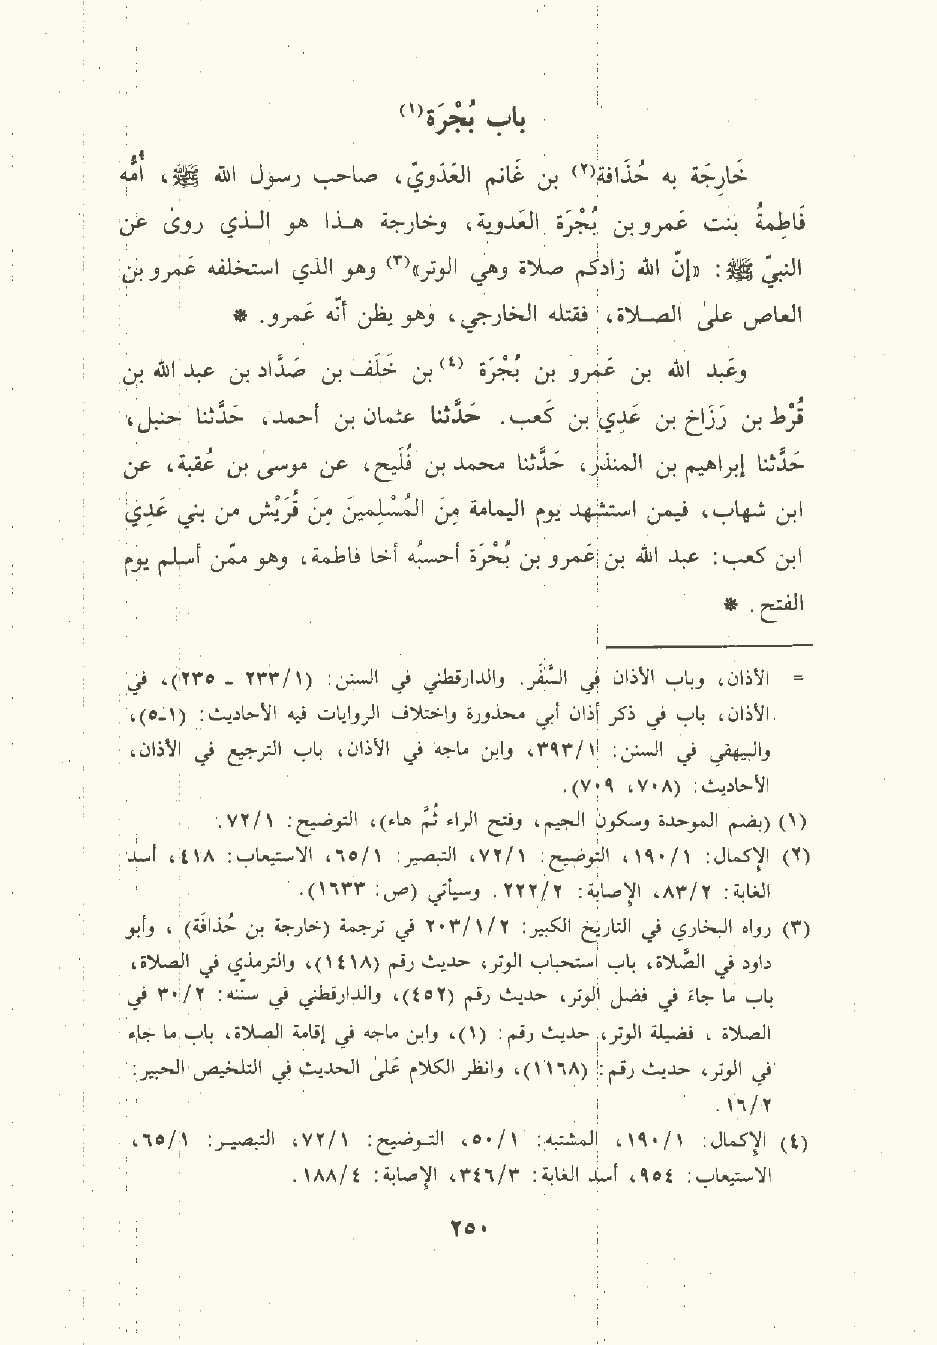 باب بُجْرَة(١)
خَارِجَة به حُذَافة(٢) بن غَانم العَدَويّ، صاحب رسول الله ﷺ، أُمُّه
فَاطِمةُ بنت عَمرو بن بُجْرَة العَدوية، وخارجة هـذا هو الـذي روىٰ عن
النبيّ ﷺ: «إنّ الله زادكم صلاة وهي الوتر»(٣) وهو الذي استخلفه عَمرو بن
العاص علىٰ الصـلاة، فقتله الخارجي، وهو يظن أنّه عَمرو. *
وعَبد الله بن عَمرو بن بُجْرَة (٤) بن خَلَف بن صَدَّاد بن عبد الله بن
قُرْط بن رَزَاح بن عَدِي بن كَعب. حَدَّثنا عثمان بن أحمد، حَدَّثنا حنبل،
حَدَّثنا إبراهيم بن المنذر، حَدَّثنا محمد بن فُلَيح، عن موسىٰ بن عُقبة، عن
ابن شهاب، فيمن استشهد يوم اليمامة مِنَ المُسْلِمينَ مِنَ قُرَيْش من بني عَدِي
ابن كعب: عبد الله بن عَمرو بن بُجْرَة أحسبُه أخا فاطمة، وهو ممّن أسلم يوم
الفتح. *
= الأذان، وباب الأذان في السَّفَر. والدارقطني في السنن: (١/ ٢٣٣ ـ ٢٣٥)، في
الأذان، باب في ذكر أذان أبي محذورة واختلاف الروايات فيه الأحاديث: (١ـ٥)،
والبيهقي في السنن: ١/ ٣٩٣، وابن ماجه في الأذان، باب الترجيع في الأذان،
الأحاديث: (٧٠٨، ٧٠٩).
(١) (بضم الموحدة وسكون الجيم، وفتح الراء ثُمَّ هاء)، التوضيح: ١/ ٧٢.
(٢) الإكمال: ١/ ١٩٠، التوضيح: ١/ ٧٢، التبصير: ١/ ٦٥، الاستيعاب: ٤١٨، أسد
الغابة: ٢/ ٨٣، الإصابة: ٢/ ٢٢٢. وسيأتي (ص: ١٦٣٣).
(٣) رواه البخاري في التاريخ الكبير: ٢/ ١/ ٢٠٣ في ترجمة (خارجة بن حُذافَة) ، وأبو
داود في الصَّلاة، باب استحباب الوتر، حديث رقم (١٤١٨)، والترمذي في الصلاة،
باب ما جاءَ في فضل الوتر، حديث رقم (٤٥٢)، والدارقطني في سننه: ٢/ ٣٠ في
الصلاة ، فضيلة الوتر، حديث رقم: (١)، وابن ماجه في إقامة الصلاة، باب ما جاء
في الوتر، حديث رقم: (١١٦٨)، وانظر الكلام عَلىٰ الحديث في التلخيص الحبير:
٢/ ١٦.
(٤) الإكمال: ١/ ١٩٠، المشتبه: ١/ ٥٠، التـوضيح: ١/ ٧٢، التبصيـر: ١/ ٦٥،
الاستيعاب: ٩٥٤، أسد الغابة: ٣/ ٣٤٦، الإصابة: ٤/ ١٨٨.
٢٥٠